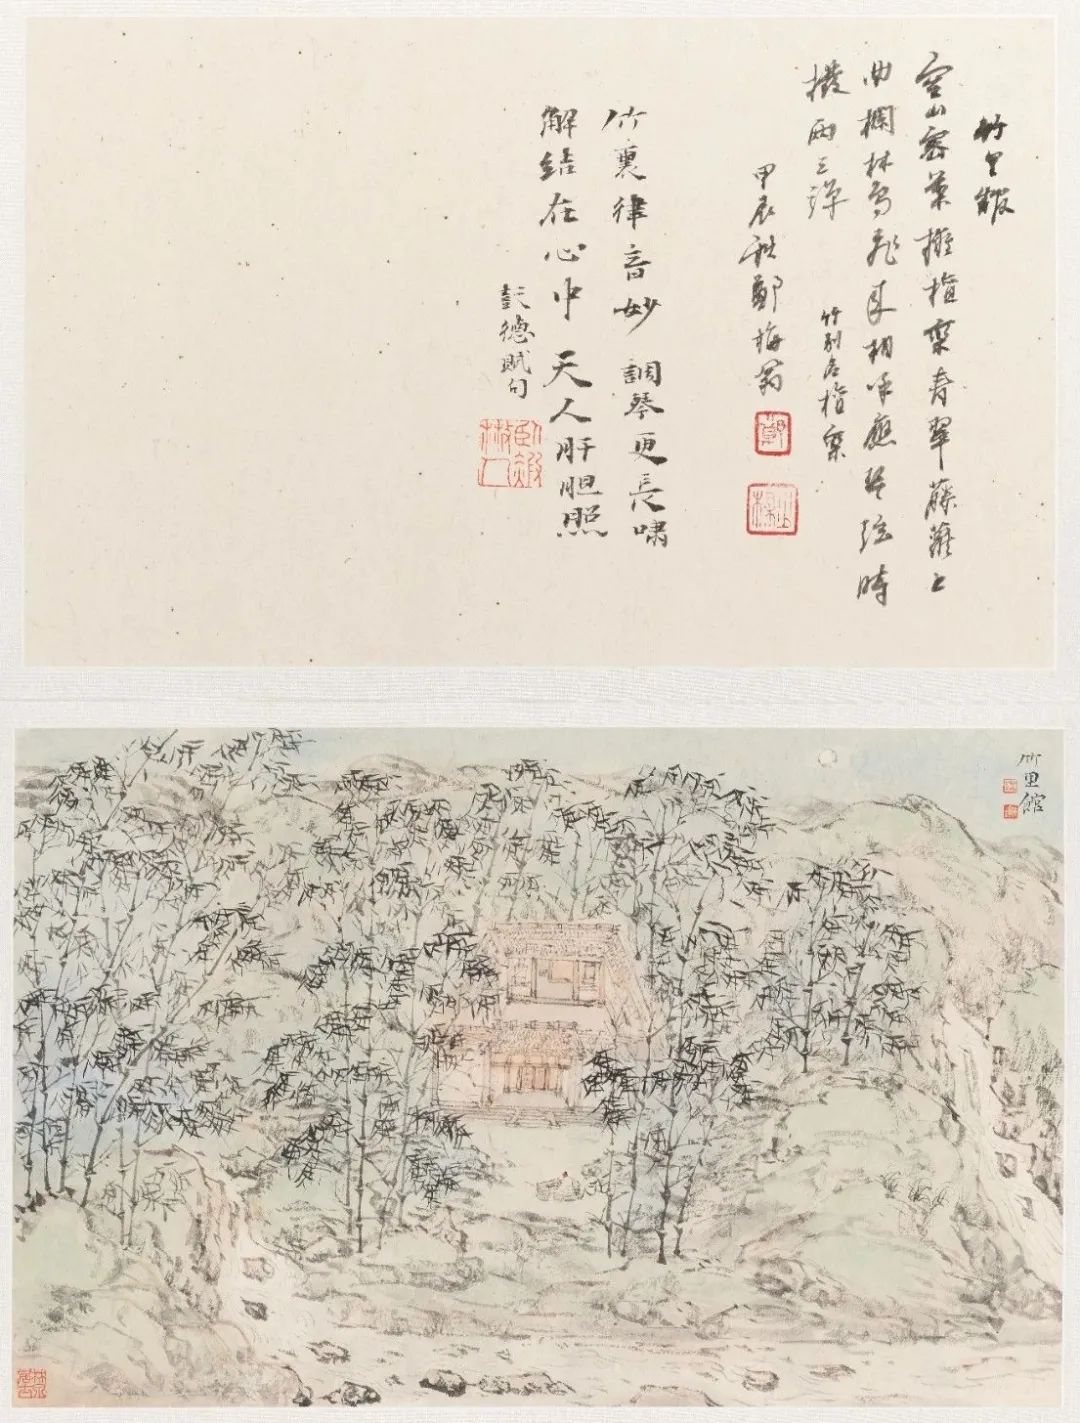 竹里館
空山密葉擁檀欒青翠藤蘿上
曲欄林鳥飛來相呼應琴弦時
撥兩三彈 竹別名檀欒
甲辰秋鄭梅
鄭
竹裏律音妙 調琴更長嘯
解結在心中 天人肝胆照
彭德賦句
竹里館